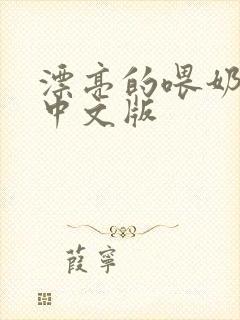 漂亮的喂奶
中文版
葭宁